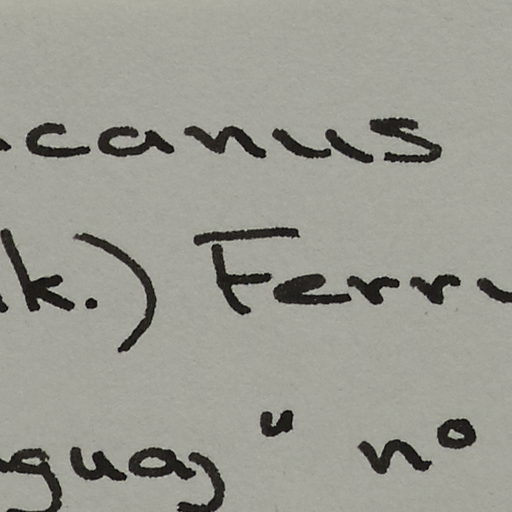 canus
k.) Ferru
guay" nº